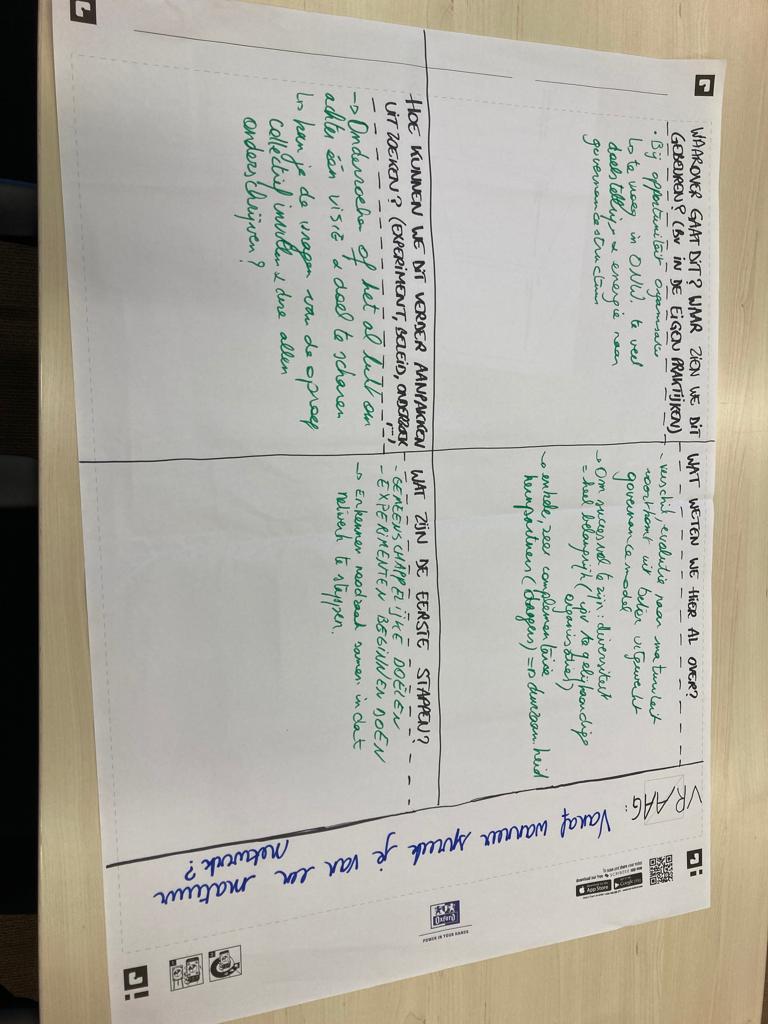 VRAAG:
Vanaf wanneer spreek je van een matuur
netwerk?
WAAROVER GAAT DIT? WAAR ZIEN WE DIT
GEBEUREN? (BV IN DE EIGEN PRAKTIJKEN)
• Bij opportuniteit organisaties
↳ te vroeg in ONW te veel
doelstelling & energie naar
governance structuur
WAT WETEN WE HIER AL OVER?
- verschil, evolutie naar maturiteit
voortkomt uit beter uitgewerkt
governance model
→ Om succesvol te zijn: diversiteit
= heel belangrijk (ipv te gelijkaardige
organisaties)
→ enkele, zeer complementaire
kernpartners (dragers) => duurzaamheid
HOE KUNNEN WE DIT VERDER AANPAKKEN
UITZOEKEN? (EXPERIMENT, BELEID, ONDERZOEK
,...)
→ Onderzoeken of het al lukt om
achter één visie & doel te scharen
↳ kan je de vragen van de oproep
collectief invullen & door allen
onderschrijven?
WAT ZIJN DE EERSTE STAPPEN?
- GEMEENSCHAPPELIJKE DOELEN
- EXPERIMENTEN BEGINNEN DOEN
→ Erkennen noodzaak samen in dat
netwerk te stappen.
Download on the
App Store
Google Play
OXFORD
POWER IN YOUR HANDS